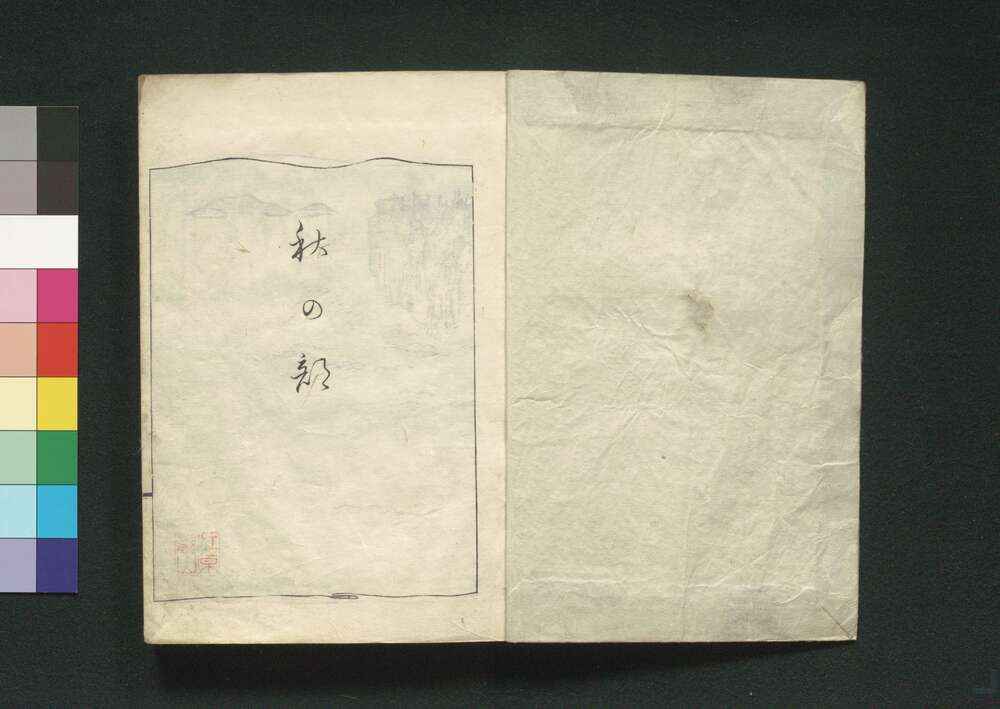 秋の部